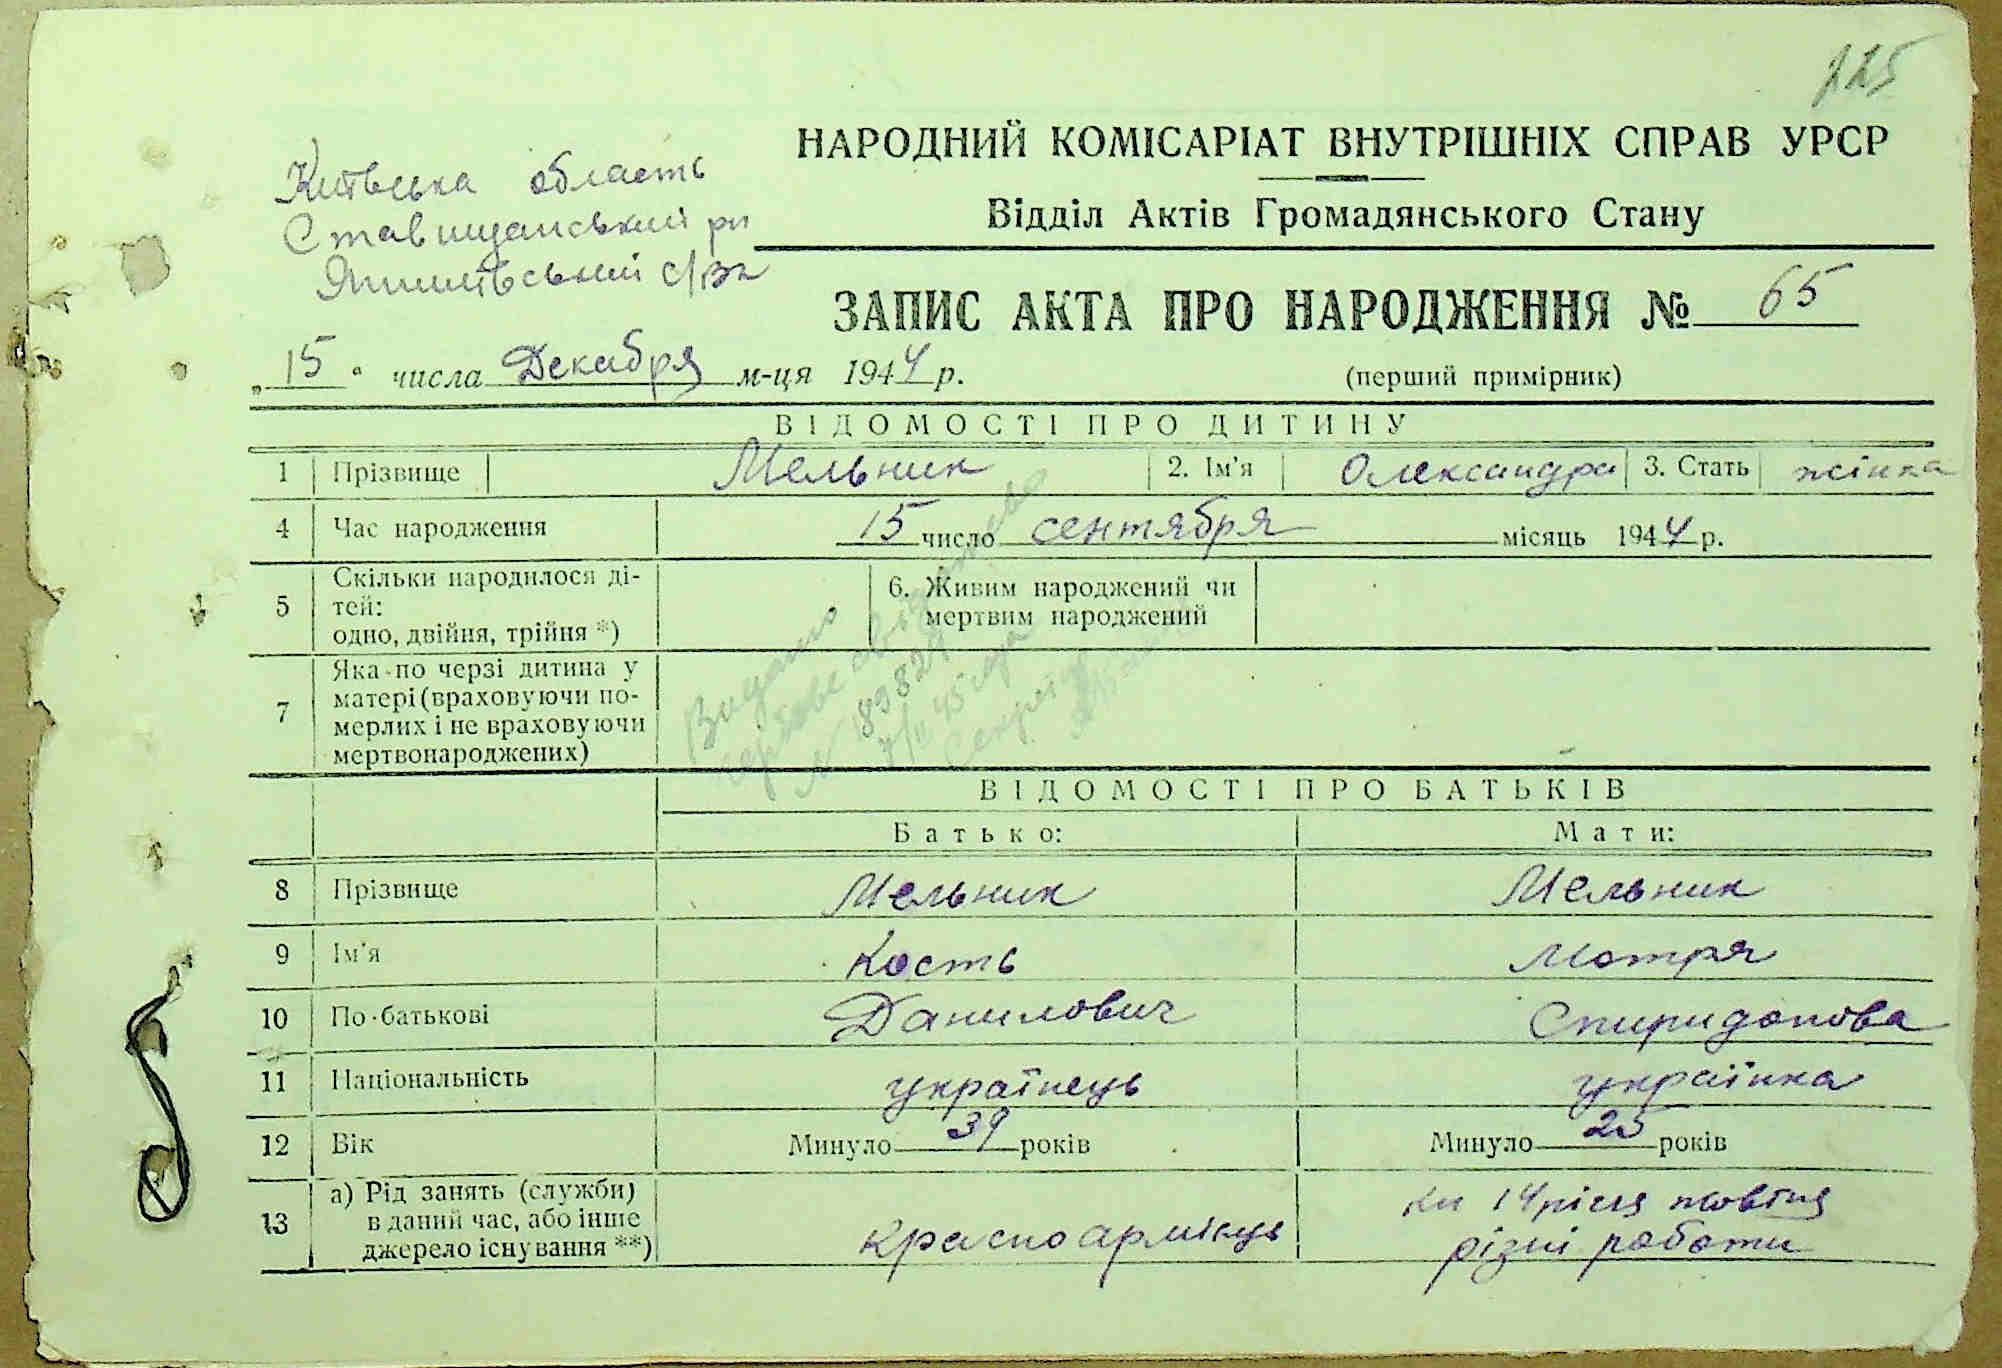 125
Київська область
Ставищанський рн
с/рада
НАРОДНИЙ КОМІСАРІАТ ВНУТРІШНІХ СПРАВ УРСР
Відділ Актів Громадянського Стану
ЗАПИС АКТА ПРО НАРОДЖЕННЯ № 65
„15" числа Декабря м-ця 1944 р.
(перший примірник)
ВІДОМОСТІ ПРО ДИТИНУ
1 Прізвище Мельник 2. Ім'я Олександра 3. Стать жінка
4 Час народження 15 число сентября місяць 1944 р.
5 Скільки народилося ді-
тей:
одно, двійня, трійня *)
6. Живим народжений чи
мертвим народжений
7 Яка по черзі дитина у
матері (враховуючи по-
мерлих і не враховуючи
мертвонароджених)
Видано
ВІДОМОСТІ ПРО БАТЬКІВ
Батько: Мати:
8 Прізвище Мельник Мельник
9 Ім'я Кость Мотря
10 По-батькові Данилович Спиридонова
11 Національність українець українка
12 Вік Минуло 39 років Минуло 25 років
13 а) Рід занять (служби)
в даний час, або інше
джерело існування **)
красноармієць
14 жовтня
різні роботи